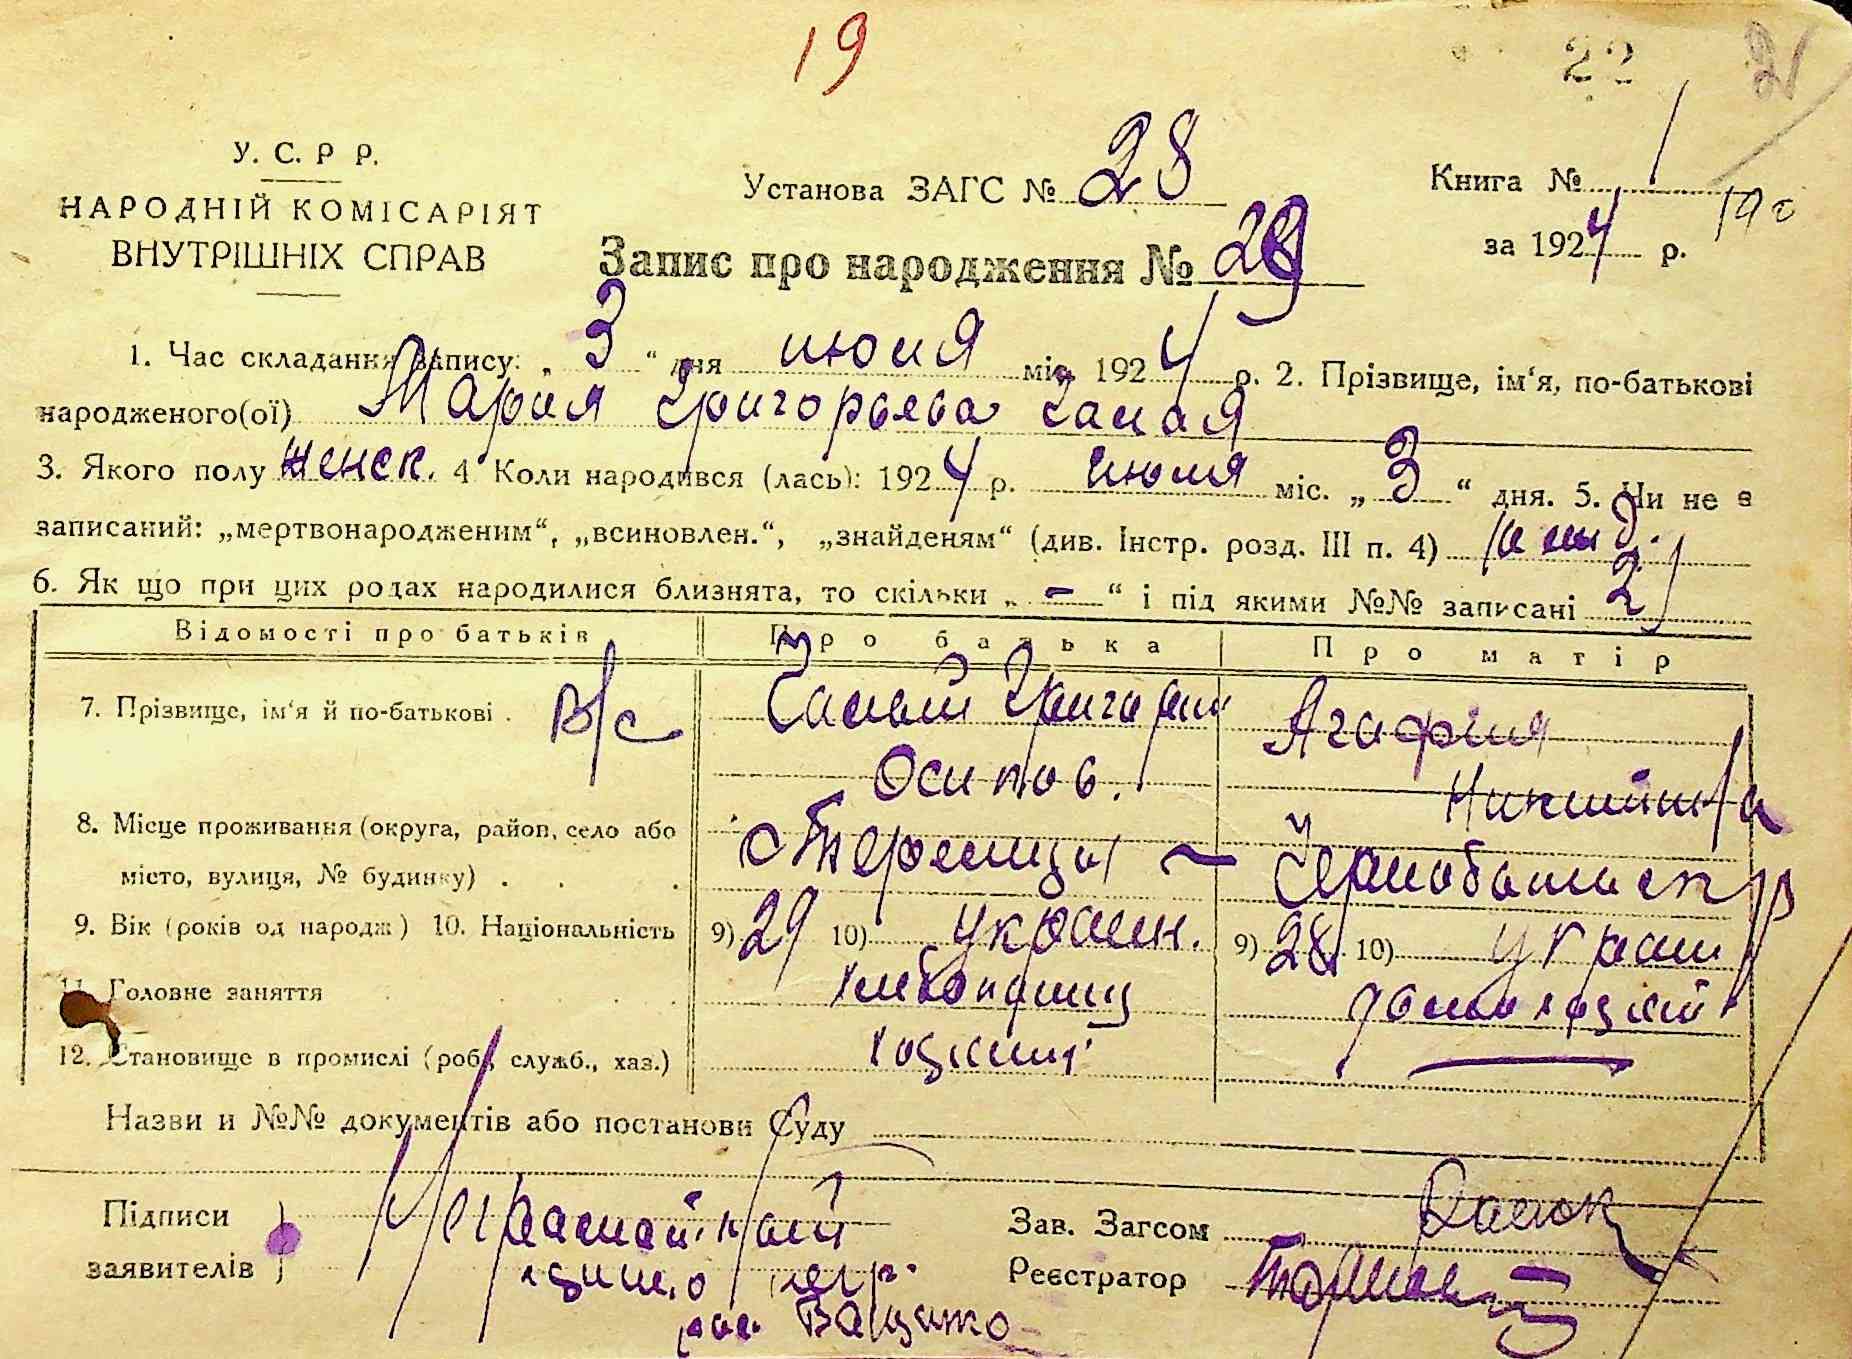 19
22
21
У. С. Р Р.
НАРОДНІЙ КОМІСАРІЯТ
ВНУТРІШНІХ СПРАВ
Установа ЗАГС № 28
Книга № 1
19 г
за 1924 р.
Запис про народження № 29
1. Час складання запису: „ 3 “ дня июня міс. 1924 р. 2. Прізвище, ім‘я, по-батькові
народженого(ої) Мария Григорьева
3. Якого полу женск. 4 Коли народився (лась): 1924 р. июня міс. „ 3 “ дня. 5. Чи не є
записаний: „мертвонародженим“, „всиновлен.“, „знайденям“ (див. Інстр. розд. III п. 4)
6. Як що при цих родах народилися близнята, то скільки „ – “ і під якими №№ записані
Відомості про батьків
Про батька
Про матір
7. Прізвище, ім‘я й по-батькові .
в/с
Григорий
Осипов.
Агафия
8. Місце проживання (округа, район, село або
місто, вулиця, № будинку) . . .
9. Вік (років од народж) 10. Національність
9) 29 10) украин.
9) 28 10) украин
11. Головне заняття
хлебопашец
12. Становище в промислі (роб., служб., хаз.)
хозяин
Назви и №№ документів або постанови Суду
Підписи
заявителів
Неграмотный
Ващенко
Зав. Загсом
Реєстратор